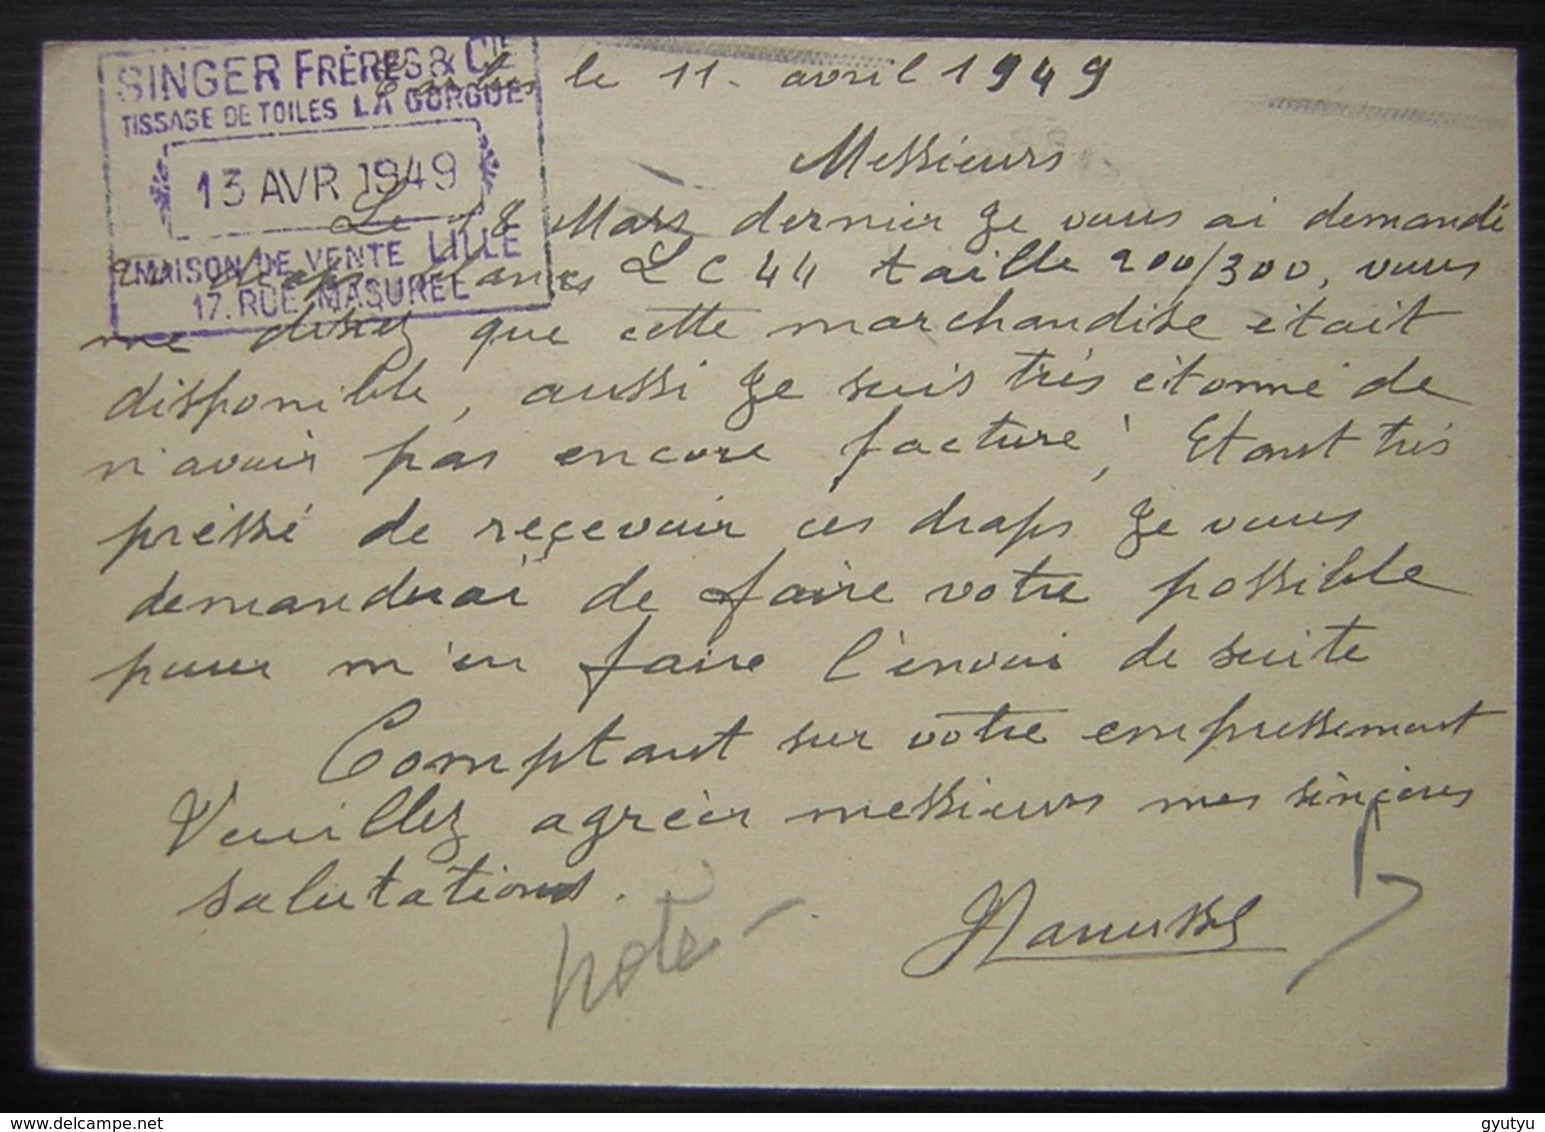 SINGER FRÈRES & CIE
TISSAGE DE TOILES LA GORGUE
13 AVR 1949
MAISON DE VENTE LILLE
17. RUE MASUREL
Tarbes le 11 avril 1949
Messieurs
Le 18 Mars dernier je vous ai demandé
draps blancs LC 44 taille 200/300, vous
me disiez que cette marchandise était
disponible, aussi je suis très étonné de
n'avoir pas encore facture, Etant très
préssé de reçevoir ces draps je vous
demanderai de faire votre possible
pour m'en faire l'envoi de suite
Comptant sur votre empressement
Veuillez agréer messieurs mes sinçères
salutations.
noté
gyutyu